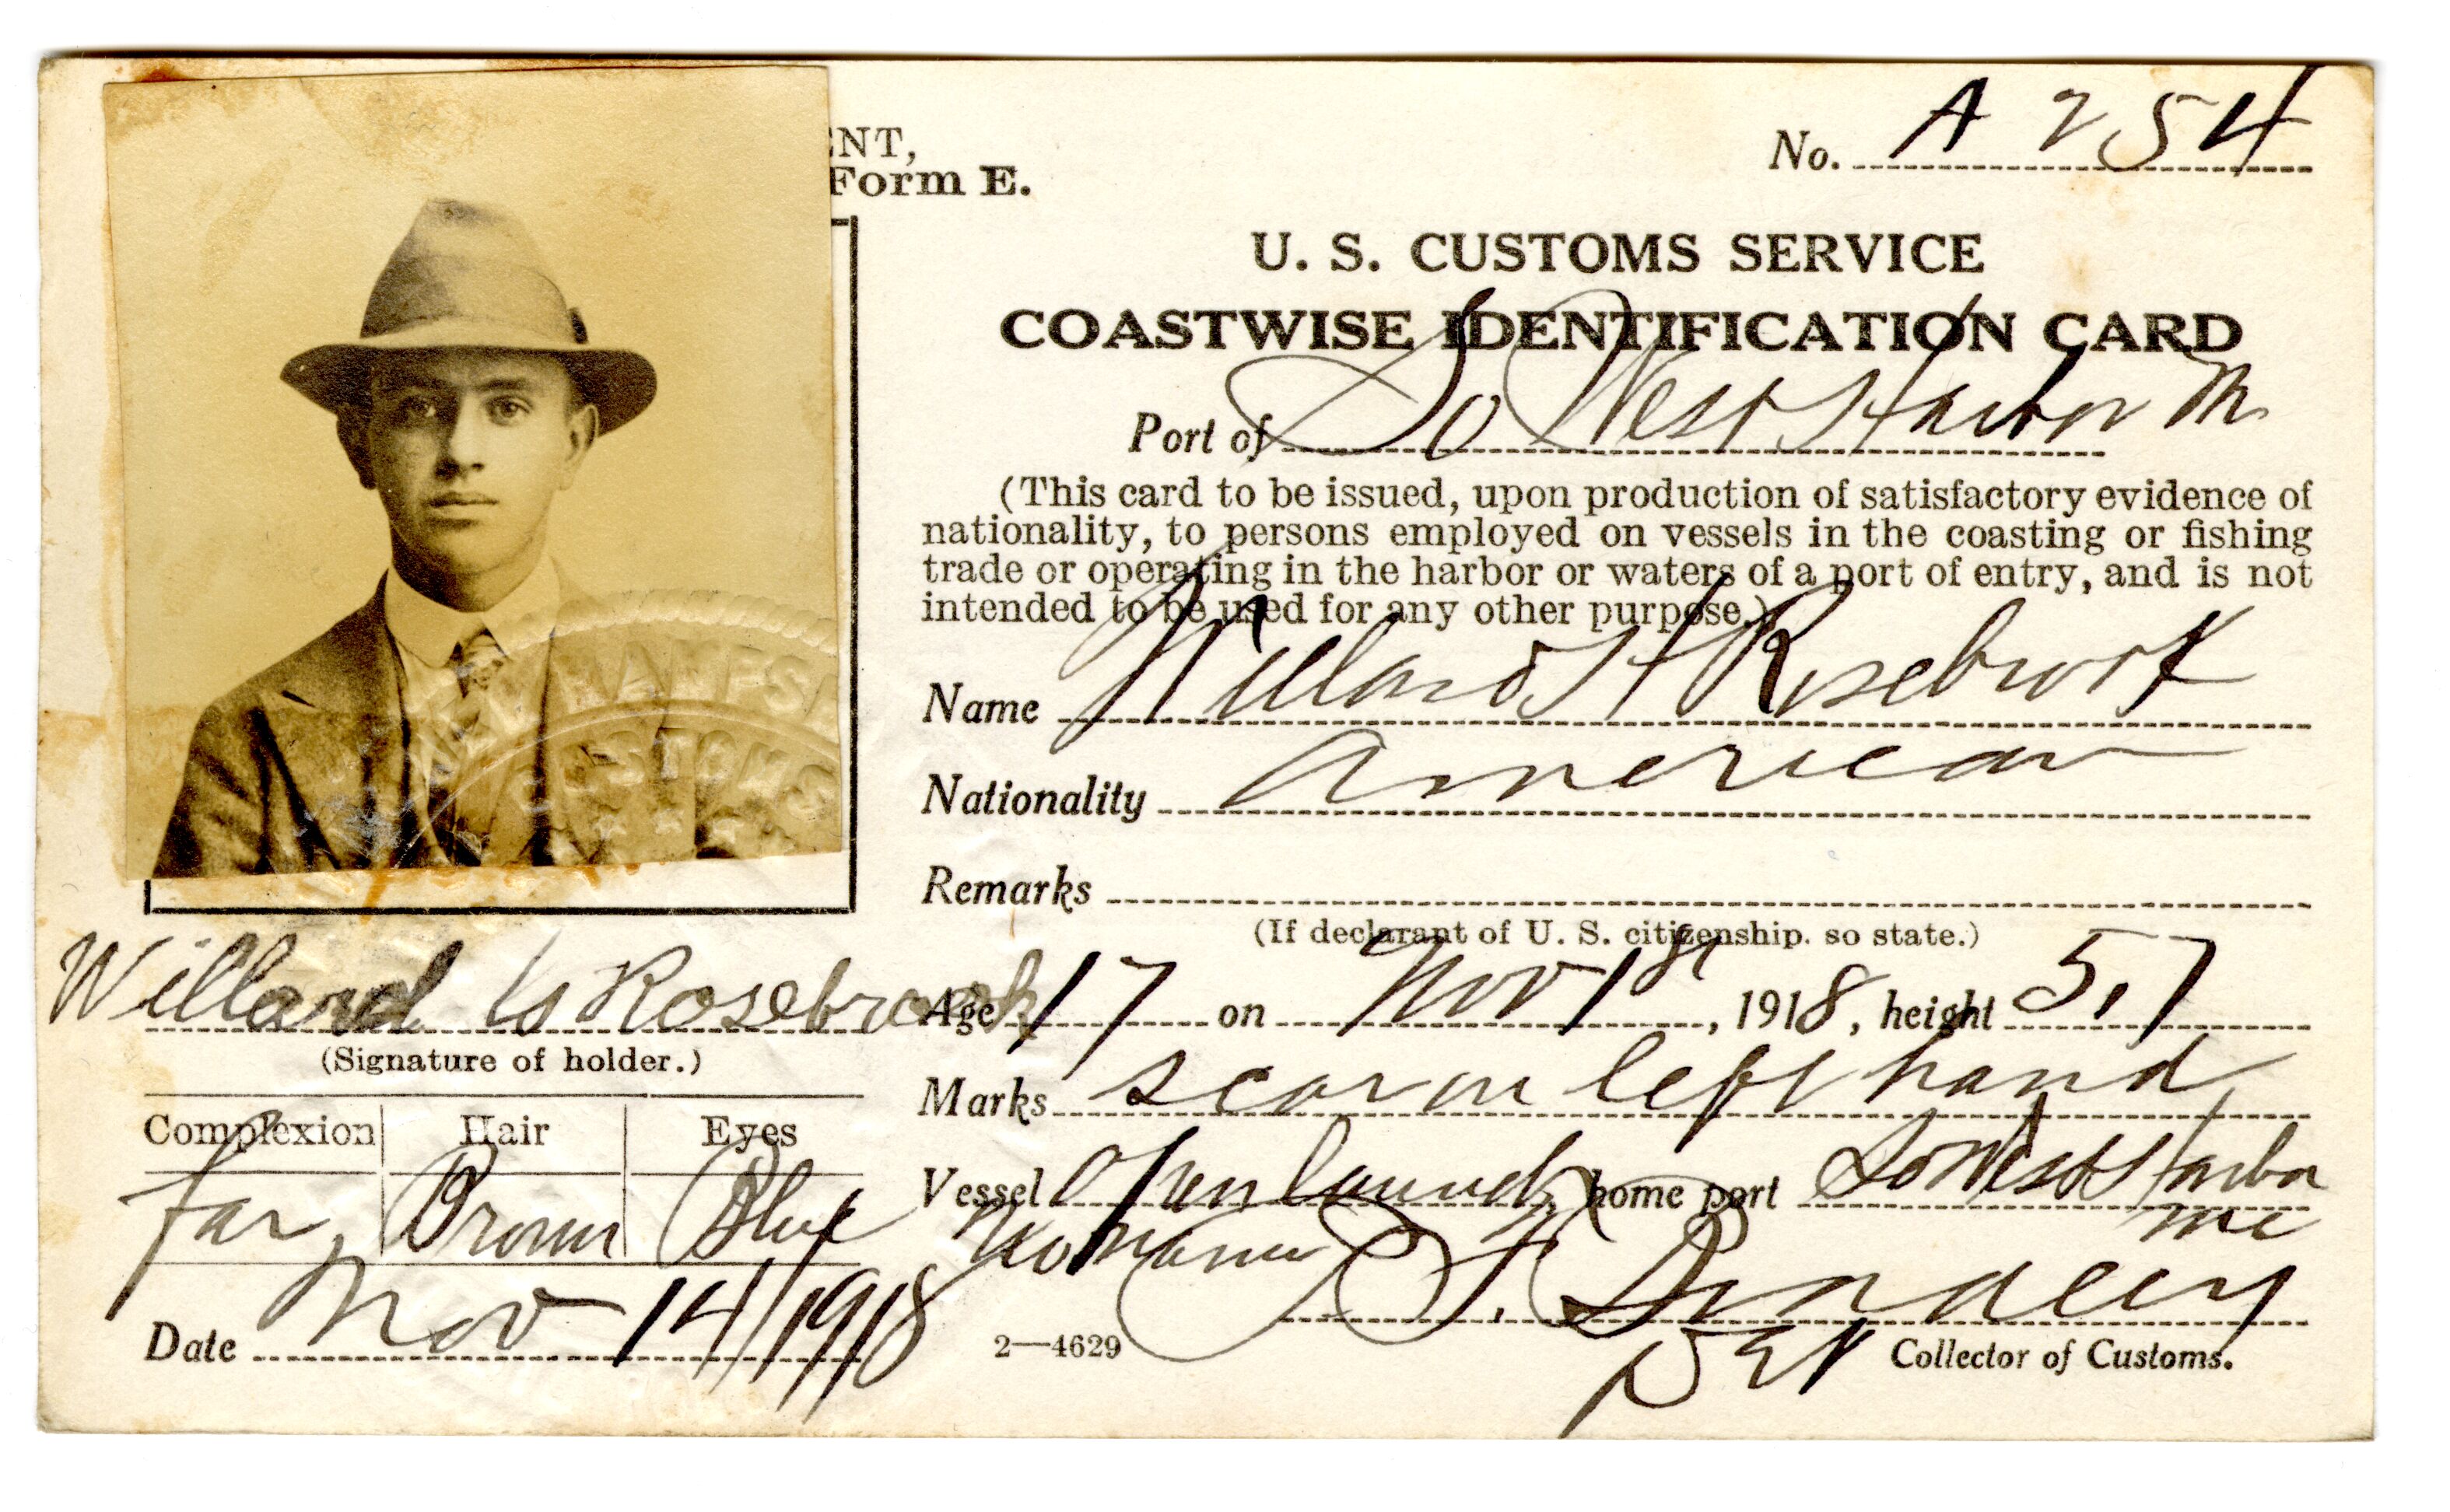 ENT,
Form E.
No. A 254
U. S. CUSTOMS SERVICE
COASTWISE IDENTIFICATION CARD
Port of So West Harbor M.
(This card to be issued, upon production of satisfactory evidence of
nationality, to persons employed on vessels in the coasting or fishing
trade or operating in the harbor or waters of a port of entry, and is not
intended to be used for any other purpose.)
Name Willard H Rosebrook
Nationality American
Remarks
(If declarant of U. S. citizenship. so state.)
Willard Rosebrook
(Signature of holder.)
Age 17 on Nov 1st, 1918, height 5.7
Marks scar on left hand
Complexion Hair Eyes
Brown Blue
Vessel Open Launch, home port So West Harbor
me
Date Nov 14/1918
2—4629
Collector of Customs.
CUSTOMS